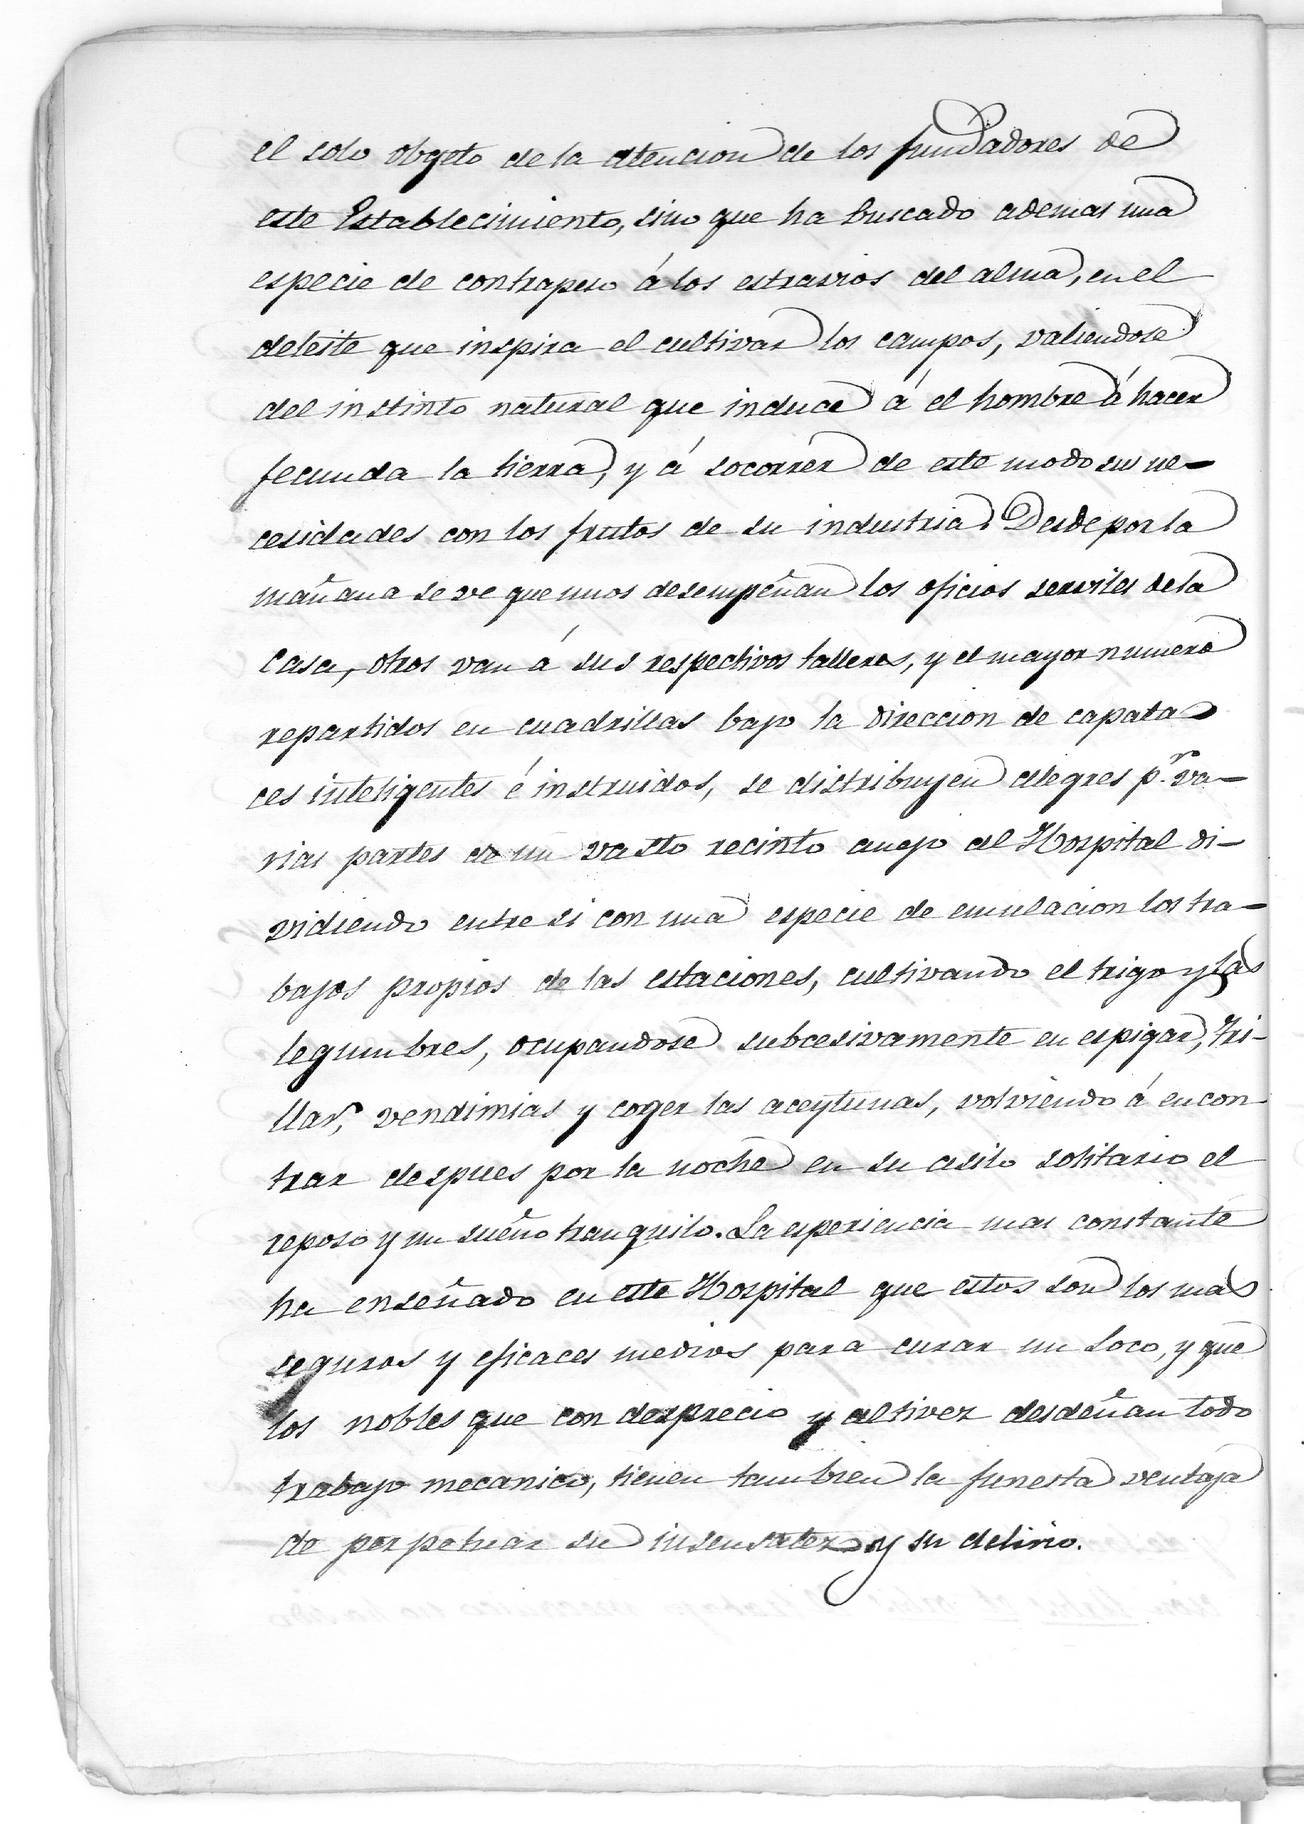 el solo objeto de la atencion de los fundadores de
este Establecimiento, sino que ha buscado ademas una
especie de contrapeso á los estravios del alma, en el
deleite que inspira el cultivar los campos, valiendose
del instinto natural que induce á el hombre á hacer
fecunda la tierra, y á socorrer de este modo sus ne-
cesidades con los frutos de su industria. Desde por la
mañana se ve que unos desempeñan los oficios serviles de la
Casa, otros van á sus respectivos talleres, y el mayor numero
repartidos en cuadrillas bajo la direccion de capata
ces inteligentes é instruidos, se distribuyen alegres pr. va-
rias partes de un vasto recinto anejo al Hospital di-
vidiendo entre si con una especie de emulacion los tra-
bajos propios de las estaciones, cultivando el trigo y las
legumbres, ocupandose subcesivamente en espigar, tri-
llar, vendimias y coger las aceytunas, volviendo á encon
trar despues por la noche en su asilo solitario el
reposo y un sueño tranquilo. La esperiencia mas constante
ha enseñado en este Hospital que estos son los mas
seguros y eficaces medios para curar un loco, y que
los nobles que con desprecio y altivez desdeñan todo
trabajo mecanico, tienen tambien la funesta ventaja
de perpetuar su insensatez y su delirio.